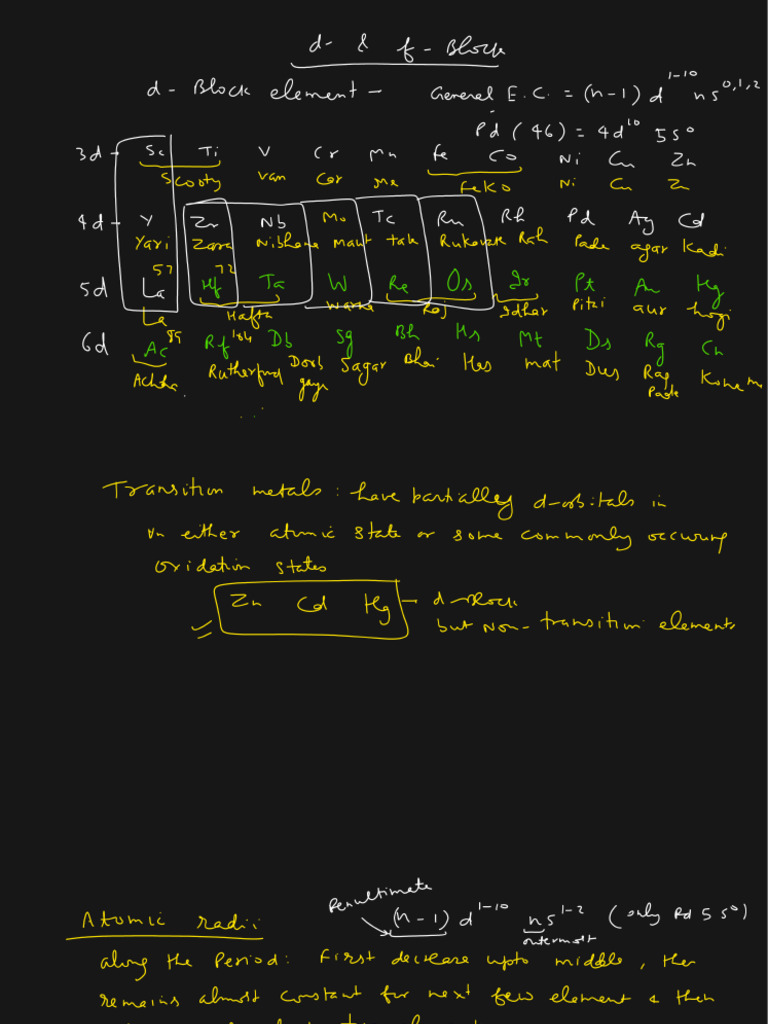 d- & f-Block
d-Block element - General E.C. = (n-1) d¹⁻¹⁰ ns⁰,¹,²
Pd (46) = 4d¹⁰ 5s⁰
3d - Sc Ti V Cr Mn Fe Co Ni Cu Zn
Scooty Van Cor Me FeKo Ni Cu Z
4d - Y Zr Nb Mo Tc Ru Rh Pd Ag Cd
Yari Zara maut tak Rah Pade agar Kadi
57 72
5d La Hf Ta W Re Os Ir Pt Au Hg
La Hafta Idhar Pitai aur hogi
6d Ac 89 Rf 104 Db Sg Bh Hs Mt Ds Rg Cn
Achha Rutherfurd Doob Sagar Bhai Has mat Dies Rag
gaya Pade
Transition metals : have partially d-orbitals in
in either atomic state or some commonly occuring
oxidation states
Zn Cd Hg - d-Block
but Non-transition elements
Penultimate
Atomic radii (n-1) d¹⁻¹⁰ ns¹⁻² (only Pd 5s⁰)
outermost
along the Period: First decrease upto middle, then
remains almost constant for next few element & then